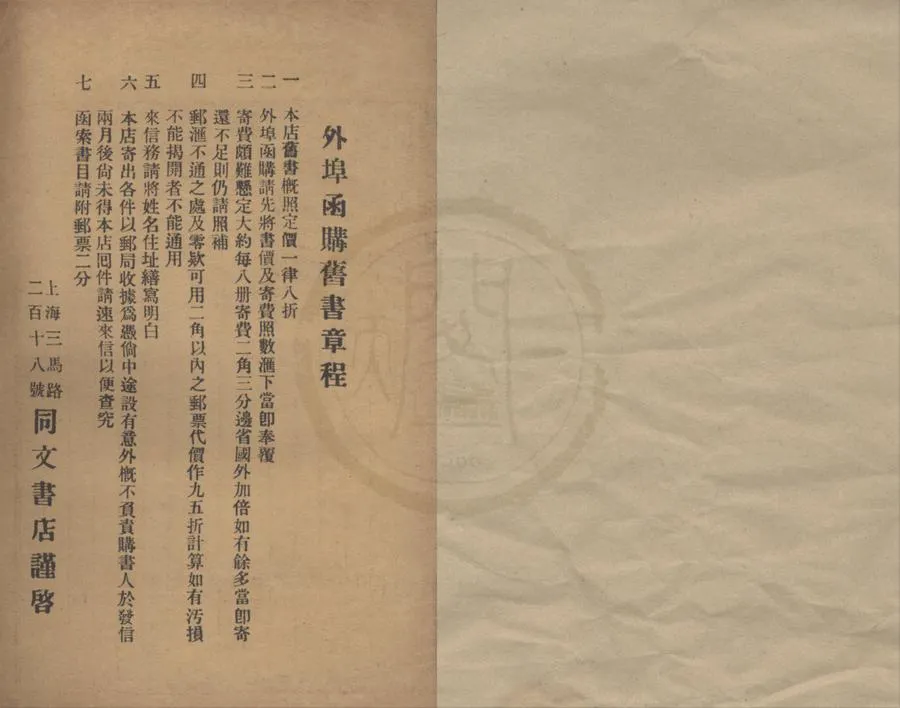 外埠函購舊書章程
一 本店舊書概照定價一律八折
二 外埠函購請先將書價及寄費照數滙下當卽奉覆
三 寄費頗難懸定大約每八册寄費二角三分邊省國外加倍如有餘多當卽寄
還不足則仍請照補
四 郵滙不通之處及零欵可用二角以內之郵票代價作九五折計算如有汚損
不能揭開者不能通用
五 來信務請將姓名住址繕寫明白
六 本店寄出各件以郵局收據爲憑倘中途設有意外概不負責購書人於發信
兩月後尙未得本店囘件請速來信以便查究
七 函索書目請附郵票二分
上海三馬路
二百十八號
同文書店謹啓